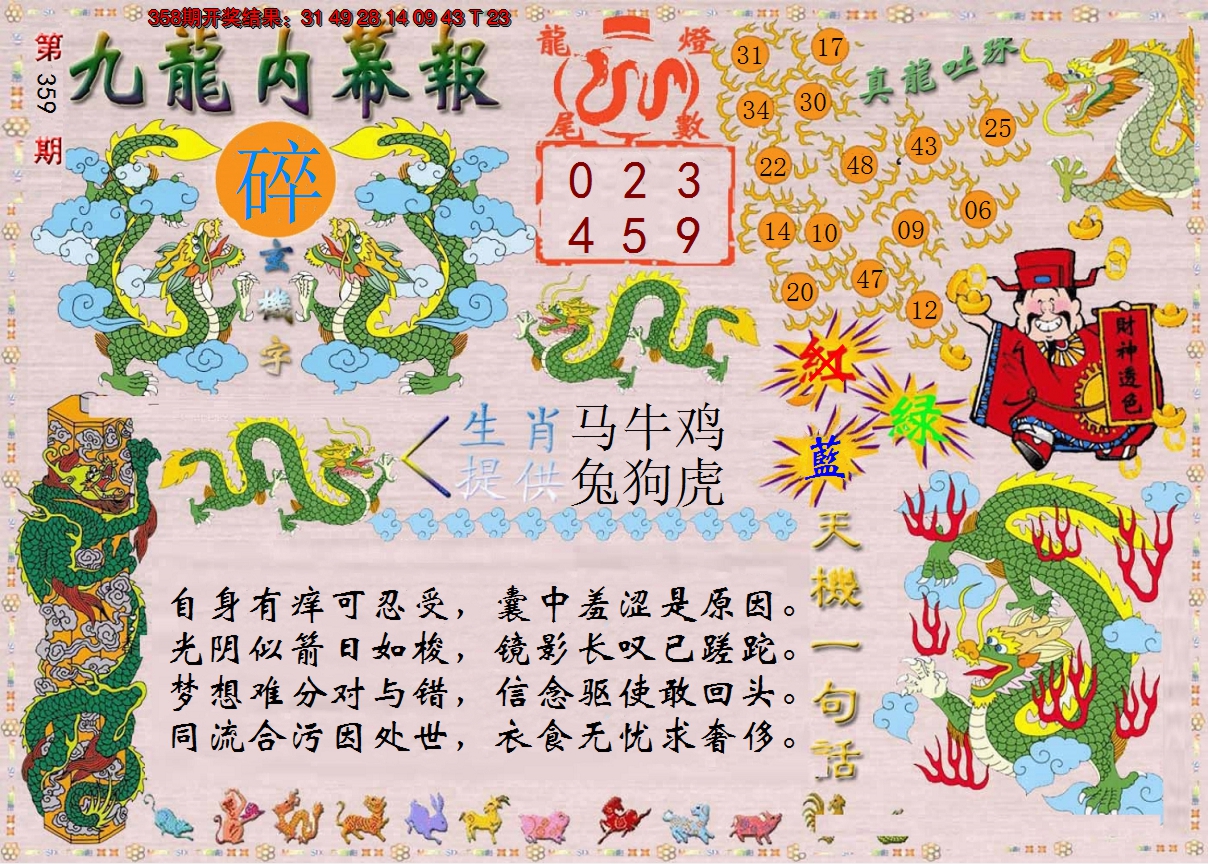 358期开奖结果：31 49 28 14 09 43 T 23
第
359
期
九龍内幕報
碎
玄
機
字
龍燈
尾數
0 2 3
4 5 9
31 17
34 30
22 48 43 25
14 10 09 06
20 47 12
真龍吐珠
財神透色
紅
綠
藍
生肖 马牛鸡
提供 兔狗虎
天機一句話
自身有痒可忍受，囊中羞涩是原因。
光阴似箭日如梭，镜影长叹已蹉跎。
梦想难分对与错，信念驱使敢回头。
同流合污因处世，衣食无忧求奢侈。